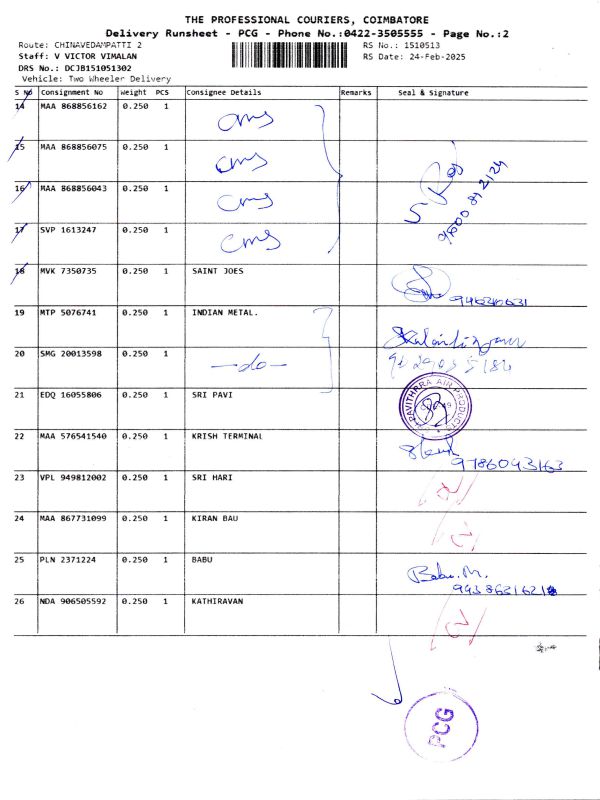 THE PROFESSIONAL COURIERS, COIMBATORE
Delivery Runsheet - PCG - Phone No.:0422-3505555 - Page No.:2
Route: CHINAVEDAMPATTI 2 RS No.: 1510513
Staff: V VICTOR VIMALAN RS Date: 24-Feb-2025
DRS No.: DCJB151051302
Vehicle: Two Wheeler Delivery
S No Consignment No Weight PCS Consignee Details Remarks Seal & Signature
14 MAA 868856162 0.250 1 cms
15 MAA 868856075 0.250 1 cms
16 MAA 868856043 0.250 1 cms
17 SVP 1613247 0.250 1 cms
18 MVK 7350735 0.250 1 SAINT JOES
19 MTP 5076741 0.250 1 INDIAN METAL.
20 SMG 20013598 0.250 1 -do-
21 EDQ 16055806 0.250 1 SRI PAVI
PAVITHRA AIR PRODUCTS
22 MAA 576541540 0.250 1 KRISH TERMINAL
9786093163
23 VPL 949812002 0.250 1 SRI HARI
24 MAA 867731099 0.250 1 KIRAN BAU
25 PLN 2371224 0.250 1 BABU Babu.M.
26 NDA 906505592 0.250 1 KATHIRAVAN
PCG